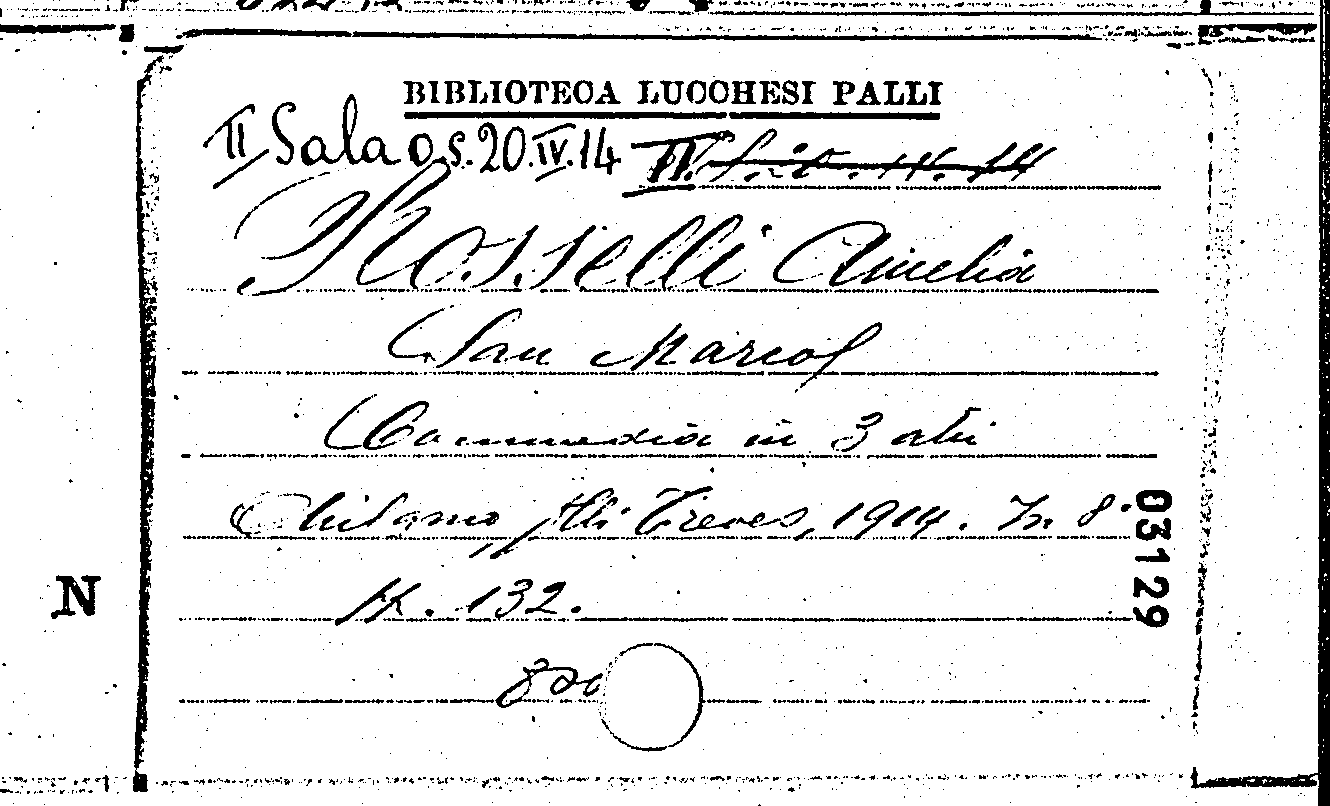 BIBLIOTECA LUCCHESI PALLI
II Sala O.s.20.IV.14
Rosselli Amelia
San Marco
Commedia in 3 atti
Milano, f.lli Treves, 1914. In 8°
pp. 132.
03129
N